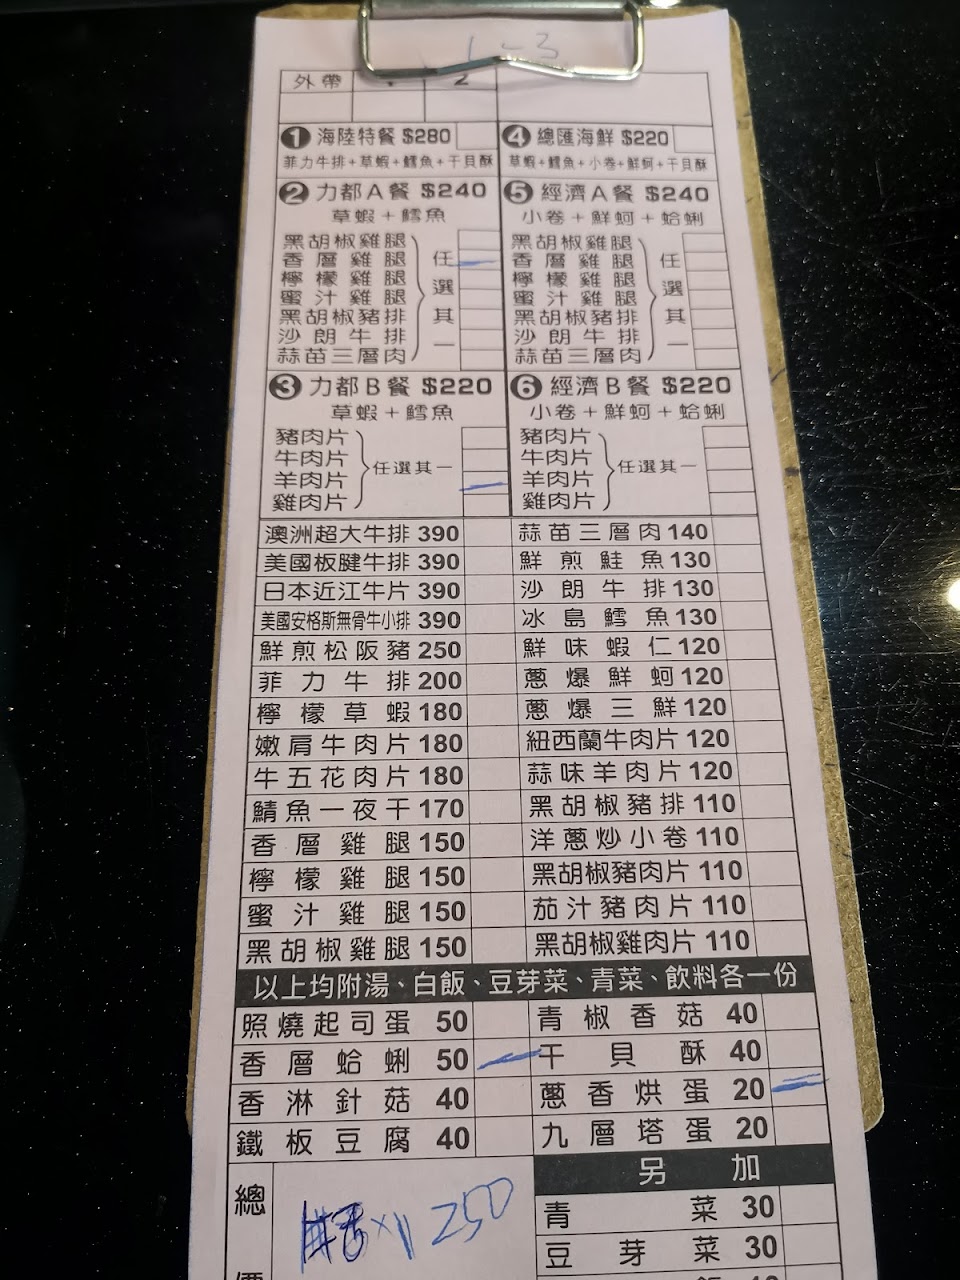 1-3
外帶 1 2
❶ 海陸特餐 $280
菲力牛排+草蝦+鱈魚+干貝酥
❷ 力都A餐 $240
草蝦+鱈魚
黑胡椒雞腿
香層雞腿
檸檬雞腿
蜜汁雞腿
黑胡椒豬排
沙朗牛排
蒜苗三層肉
任選其一
❸ 力都B餐 $220
草蝦+鱈魚
豬肉片
牛肉片
羊肉片
雞肉片
任選其一
❹ 總匯海鮮 $220
草蝦+鱈魚+小卷+鮮蚵+干貝酥
❺ 經濟A餐 $240
小卷+鮮蚵+蛤蜊
黑胡椒雞腿
香層雞腿
檸檬雞腿
蜜汁雞腿
黑胡椒豬排
沙朗牛排
蒜苗三層肉
任選其一
❻ 經濟B餐 $220
小卷+鮮蚵+蛤蜊
豬肉片
牛肉片
羊肉片
雞肉片
任選其一
澳洲超大牛排 390
美國板腱牛排 390
日本近江牛片 390
美國安格斯無骨牛小排 390
鮮煎松阪豬 250
菲力牛排 200
檸檬草蝦 180
嫩肩牛肉片 180
牛五花肉片 180
鯖魚一夜干 170
香層雞腿 150
檸檬雞腿 150
蜜汁雞腿 150
黑胡椒雞腿 150
蒜苗三層肉 140
鮮煎鮭魚 130
沙朗牛排 130
冰島鱈魚 130
鮮味蝦仁 120
蔥爆鮮蚵 120
蔥爆三鮮 120
紐西蘭牛肉片 120
蒜味羊肉片 120
黑胡椒豬排 110
洋蔥炒小卷 110
黑胡椒豬肉片 110
茄汁豬肉片 110
黑胡椒雞肉片 110
以上均附湯、白飯、豆芽菜、青菜、飲料各一份
照燒起司蛋 50
香層蛤蜊 50
香淋針菇 40
鐵板豆腐 40
青椒香菇 40
干貝酥 40
蔥香烘蛋 20
九層塔蛋 20
另加
青菜 30
豆芽菜 30
總
x1 250